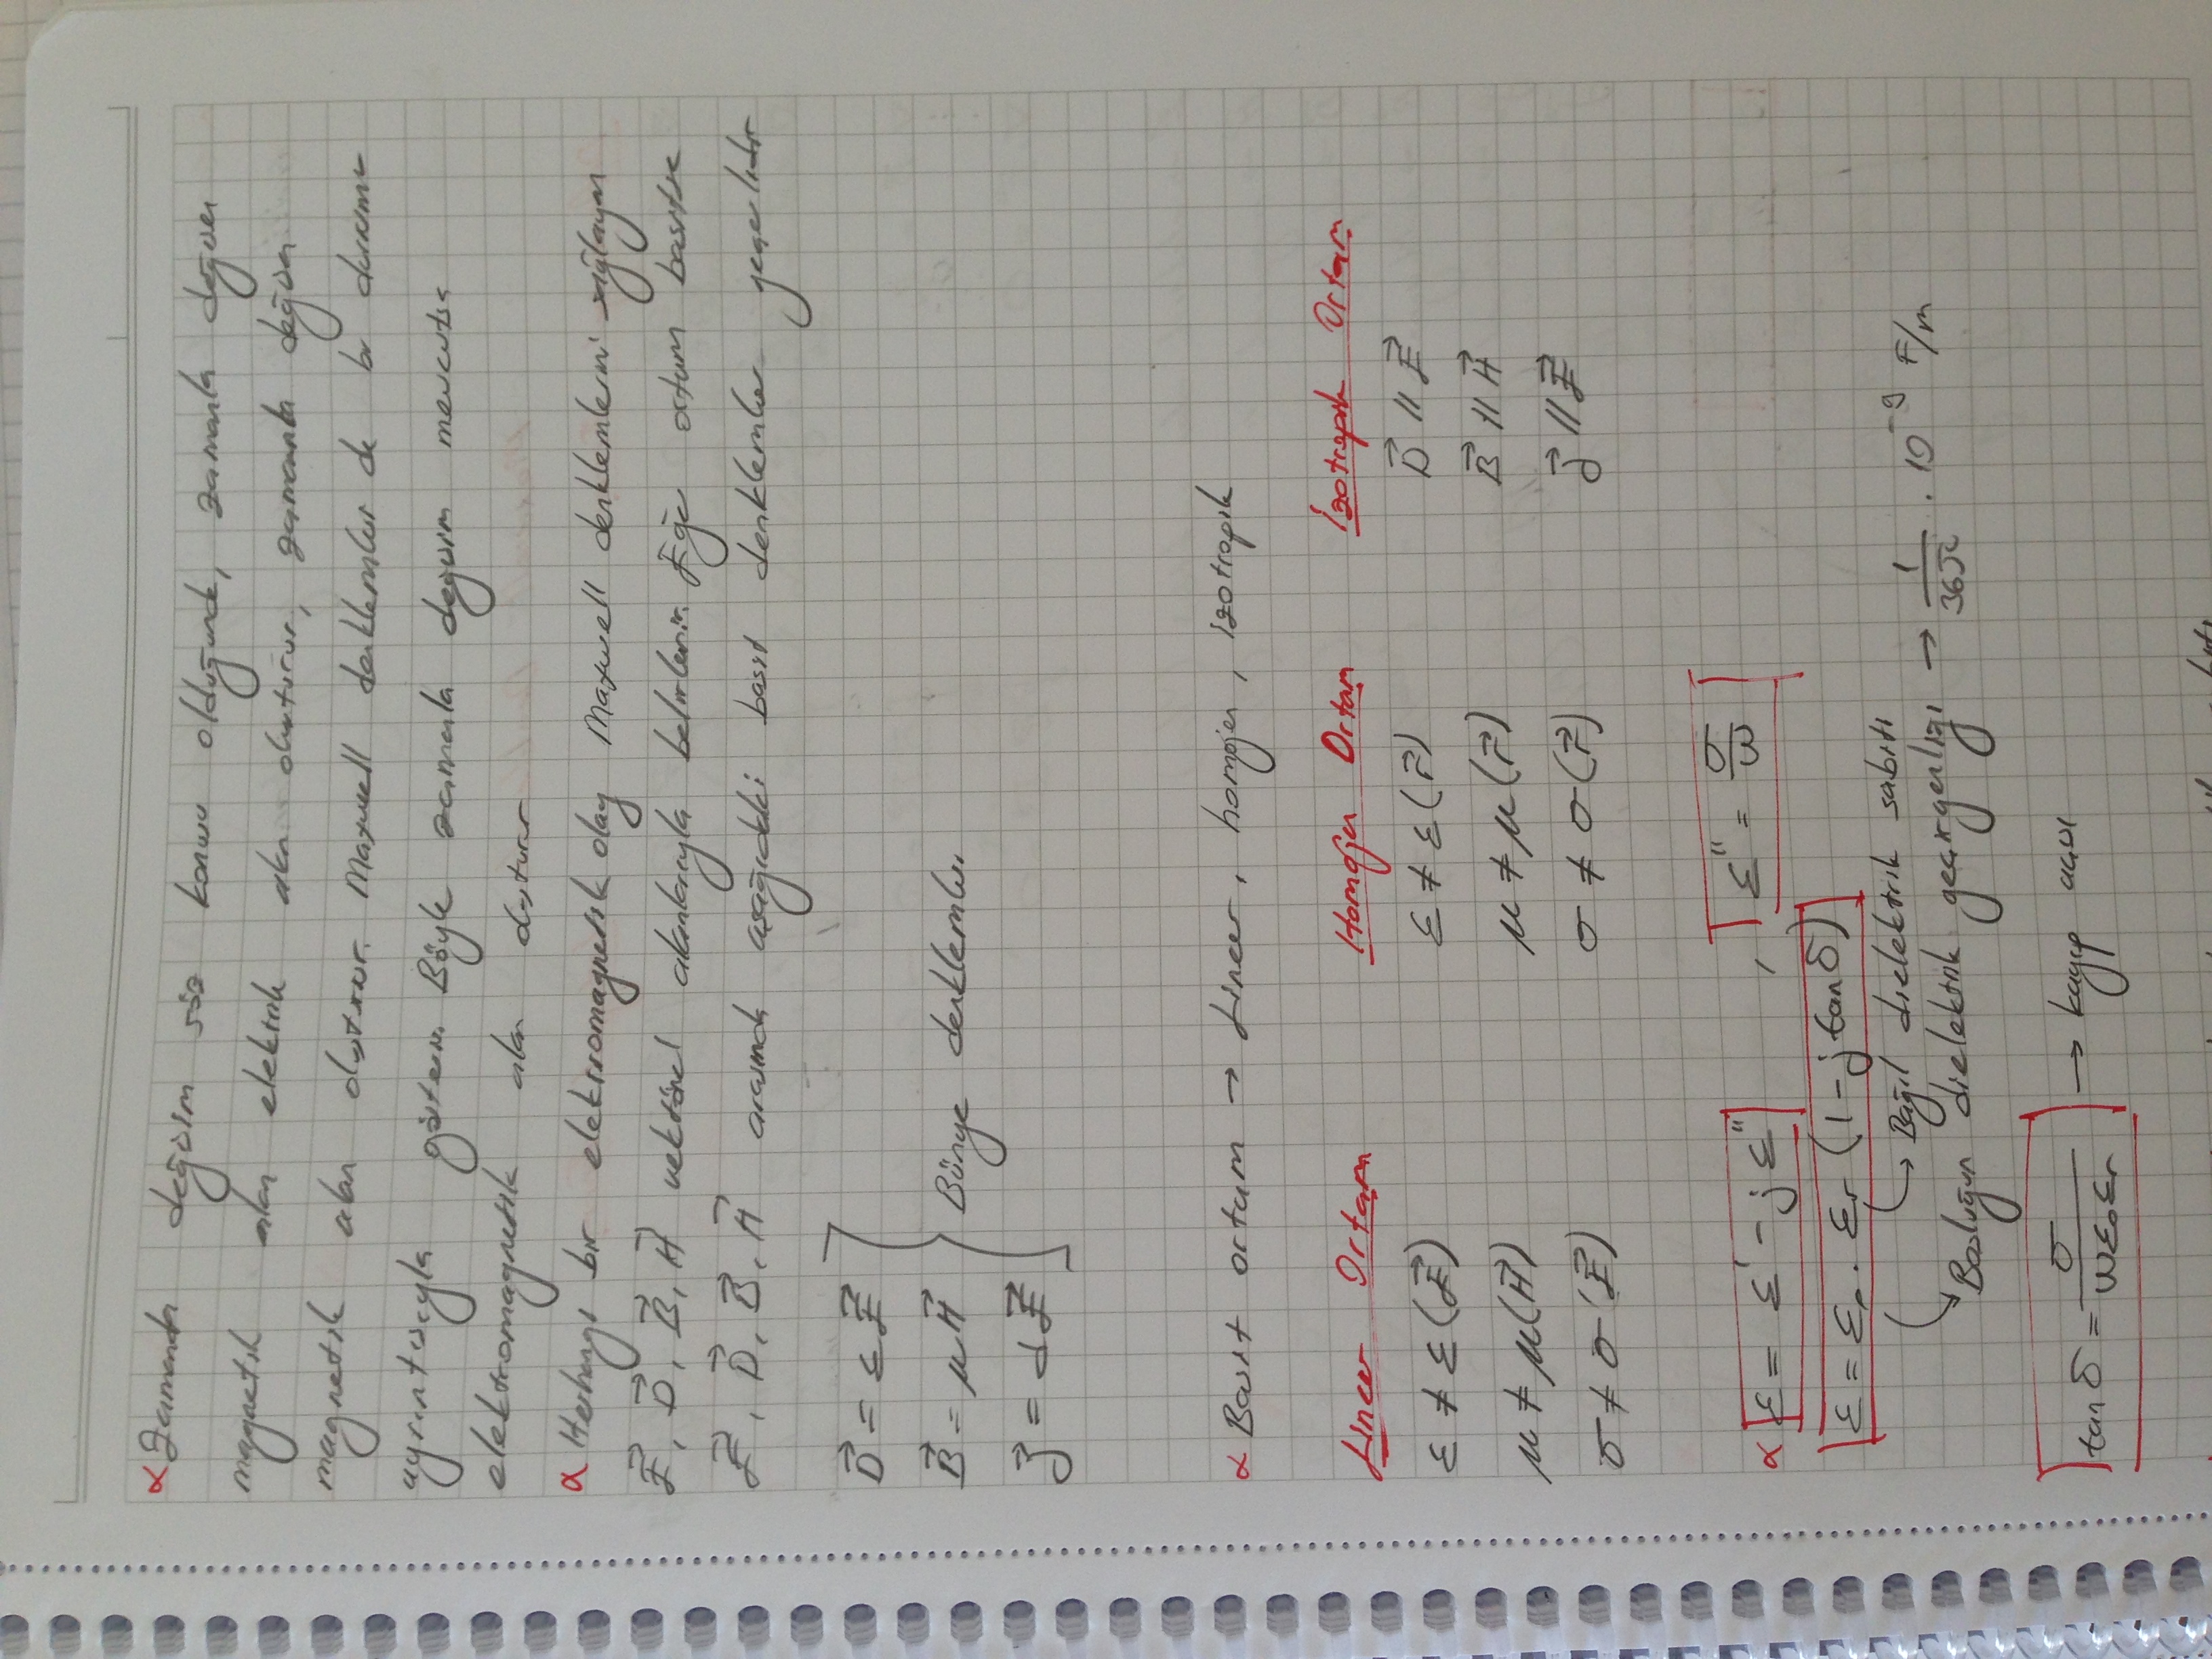 α Zamanda değişim söz konusu olduğunda, zamanla değişen
magnetik alan elektrik alan oluşturur, zamanla değişen
magnetik alan oluşturur. Maxwell denklemleri de bu durumu
ayrıntısıyla gösterir. Böyle zamanla değişim mevcutsa
elektromagnetik alan oluşturur
α Herhangi bir elektromagnetik olay Maxwell denklemlerini sağlayan
E⃗, D⃗, B⃗, H⃗ vektörel alanlarıyla belirlenir. Eğer ortam basitse
E⃗, D⃗, B⃗, H⃗ arasında aşağıdaki basit denklemler geçerlidir
D⃗ = εE⃗
B⃗ = μH⃗ Bünye denklemleri
J⃗ = σE⃗
α Basit ortam → Lineer, homojen, izotropik
Lineer Ortam Homojen Ortam İzotropik Ortam
ε ≠ ε(E⃗) ε ≠ ε(r⃗) D⃗ // E⃗
μ ≠ μ(H⃗) μ ≠ μ(r⃗) B⃗ // H⃗
σ ≠ σ(E⃗) σ ≠ σ(r⃗) J⃗ // E⃗
α ε = ε' - jε" , ε" = σ/ω
ε = ε₀ . εr (1 - j tan δ)
→ Bağıl dielektrik sabiti
→ Boşluğun dielektrik geçirgenliği → 1/36π . 10⁻⁹ F/m
tan δ = σ/ωε₀εr → kayıp açısı